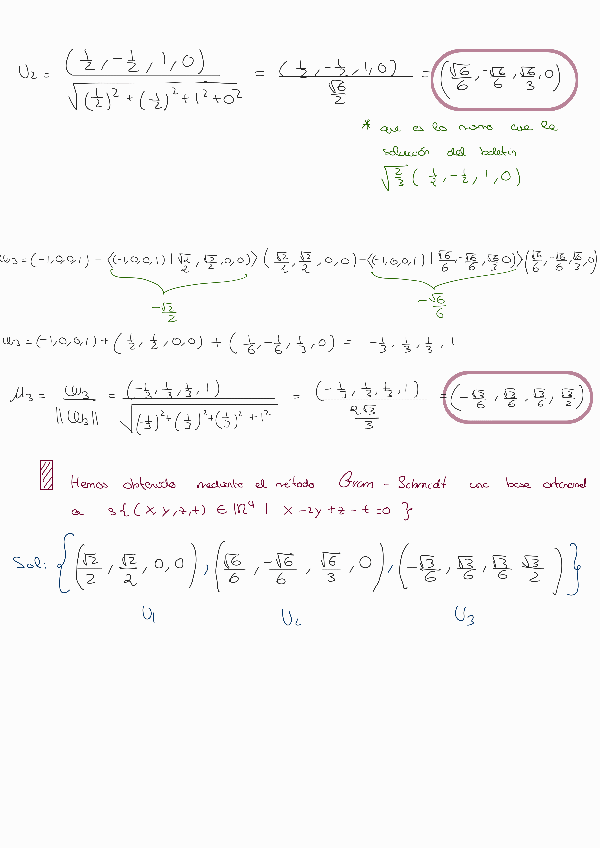 U₂ = (1/2, -1/2, 1, 0) / √((1/2)² + (-1/2)² + 1² + 0²) = (1/2, -1/2, 1, 0) / (√6/2) = (√6/6, -√6/6, √6/3, 0)
* que es lo mismo que la
solución del boletín
√(2/3) (1/2, -1/2, 1, 0)
ω₃ = (-1,0,0,1) - ⟨(-1,0,0,1) | √2/2, √2/2, 0, 0)⟩ (√2/2, √2/2, 0, 0) - ⟨(-1,0,0,1) | √6/6, -√6/6, √6/3, 0)⟩ (√6/6, -√6/6, √6/3, 0)
-√2/2 -√6/6
ω₃ = (-1,0,0,1) + (1/2, 1/2, 0, 0) + (1/6, -1/6, 1/3, 0) = -1/3, 1/3, 1/3, 1
μ₃ = ω₃ / ||ω₃|| = (-1/3, 1/3, 1/3, 1) / √((1/3)² + (1/3)² + (1/3)² + 1² = (-1/3, 1/3, 1/3, 1) / (2√3/3) = (-√3/6, √3/6, √3/6, √3/2)
Hemos obtenido mediante el método Gram - Schmidt una base ortonormal
a S{(x y, z, t) ∈ ℝ⁴ | x - 2y + z - t = 0}
Sol: {(√2/2, √2/2, 0, 0), (√6/6, -√6/6, √6/3, 0), (-√3/6, √3/6, √3/6 √3/2)}
U₁ U₂ U₃